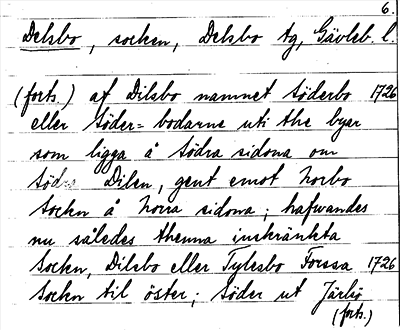 6.
Delsbo, socken, Delsbo tg, Gävleb. l.
(forts.) af Dilsbo namnet Söderbo 1726
eller Söder=bodarne uti the byar
som ligga å Södra sidona om
Södra Dilen, gent emot Norbo
Sockn å Norra sidona; hafwandes
nu således thenna inskränkta
Sockn, Dilsbo eller Tylesbo Forssa 1726
Sockn til öster; Söder ut Järsiö
(forts.)